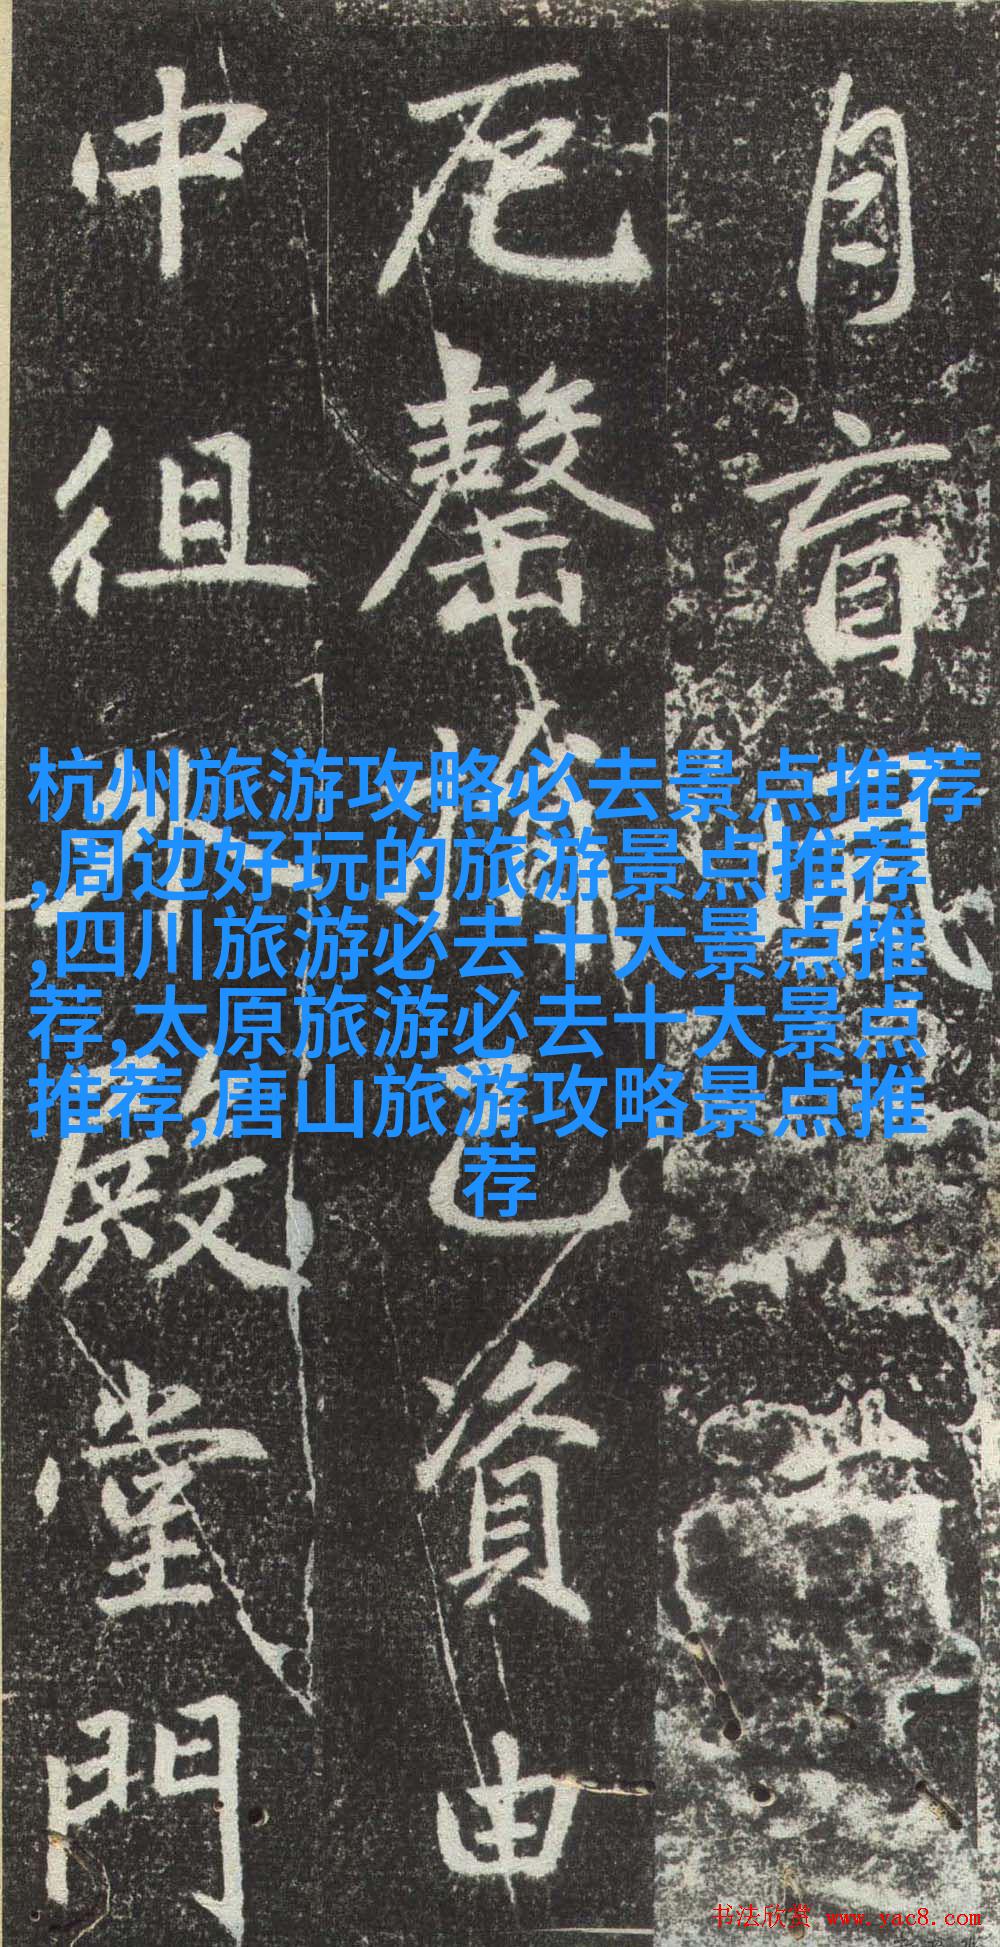 杭州旅游攻略必去景点推荐
,周边好玩的旅游景点推荐
,四川旅游必去十大景点推
荐,太原旅游必去十大景点
推荐,唐山旅游攻略景点推
荐
自盲風
厄罄已資由
中徂殿堂門
书法欣赏 www.yac8.com